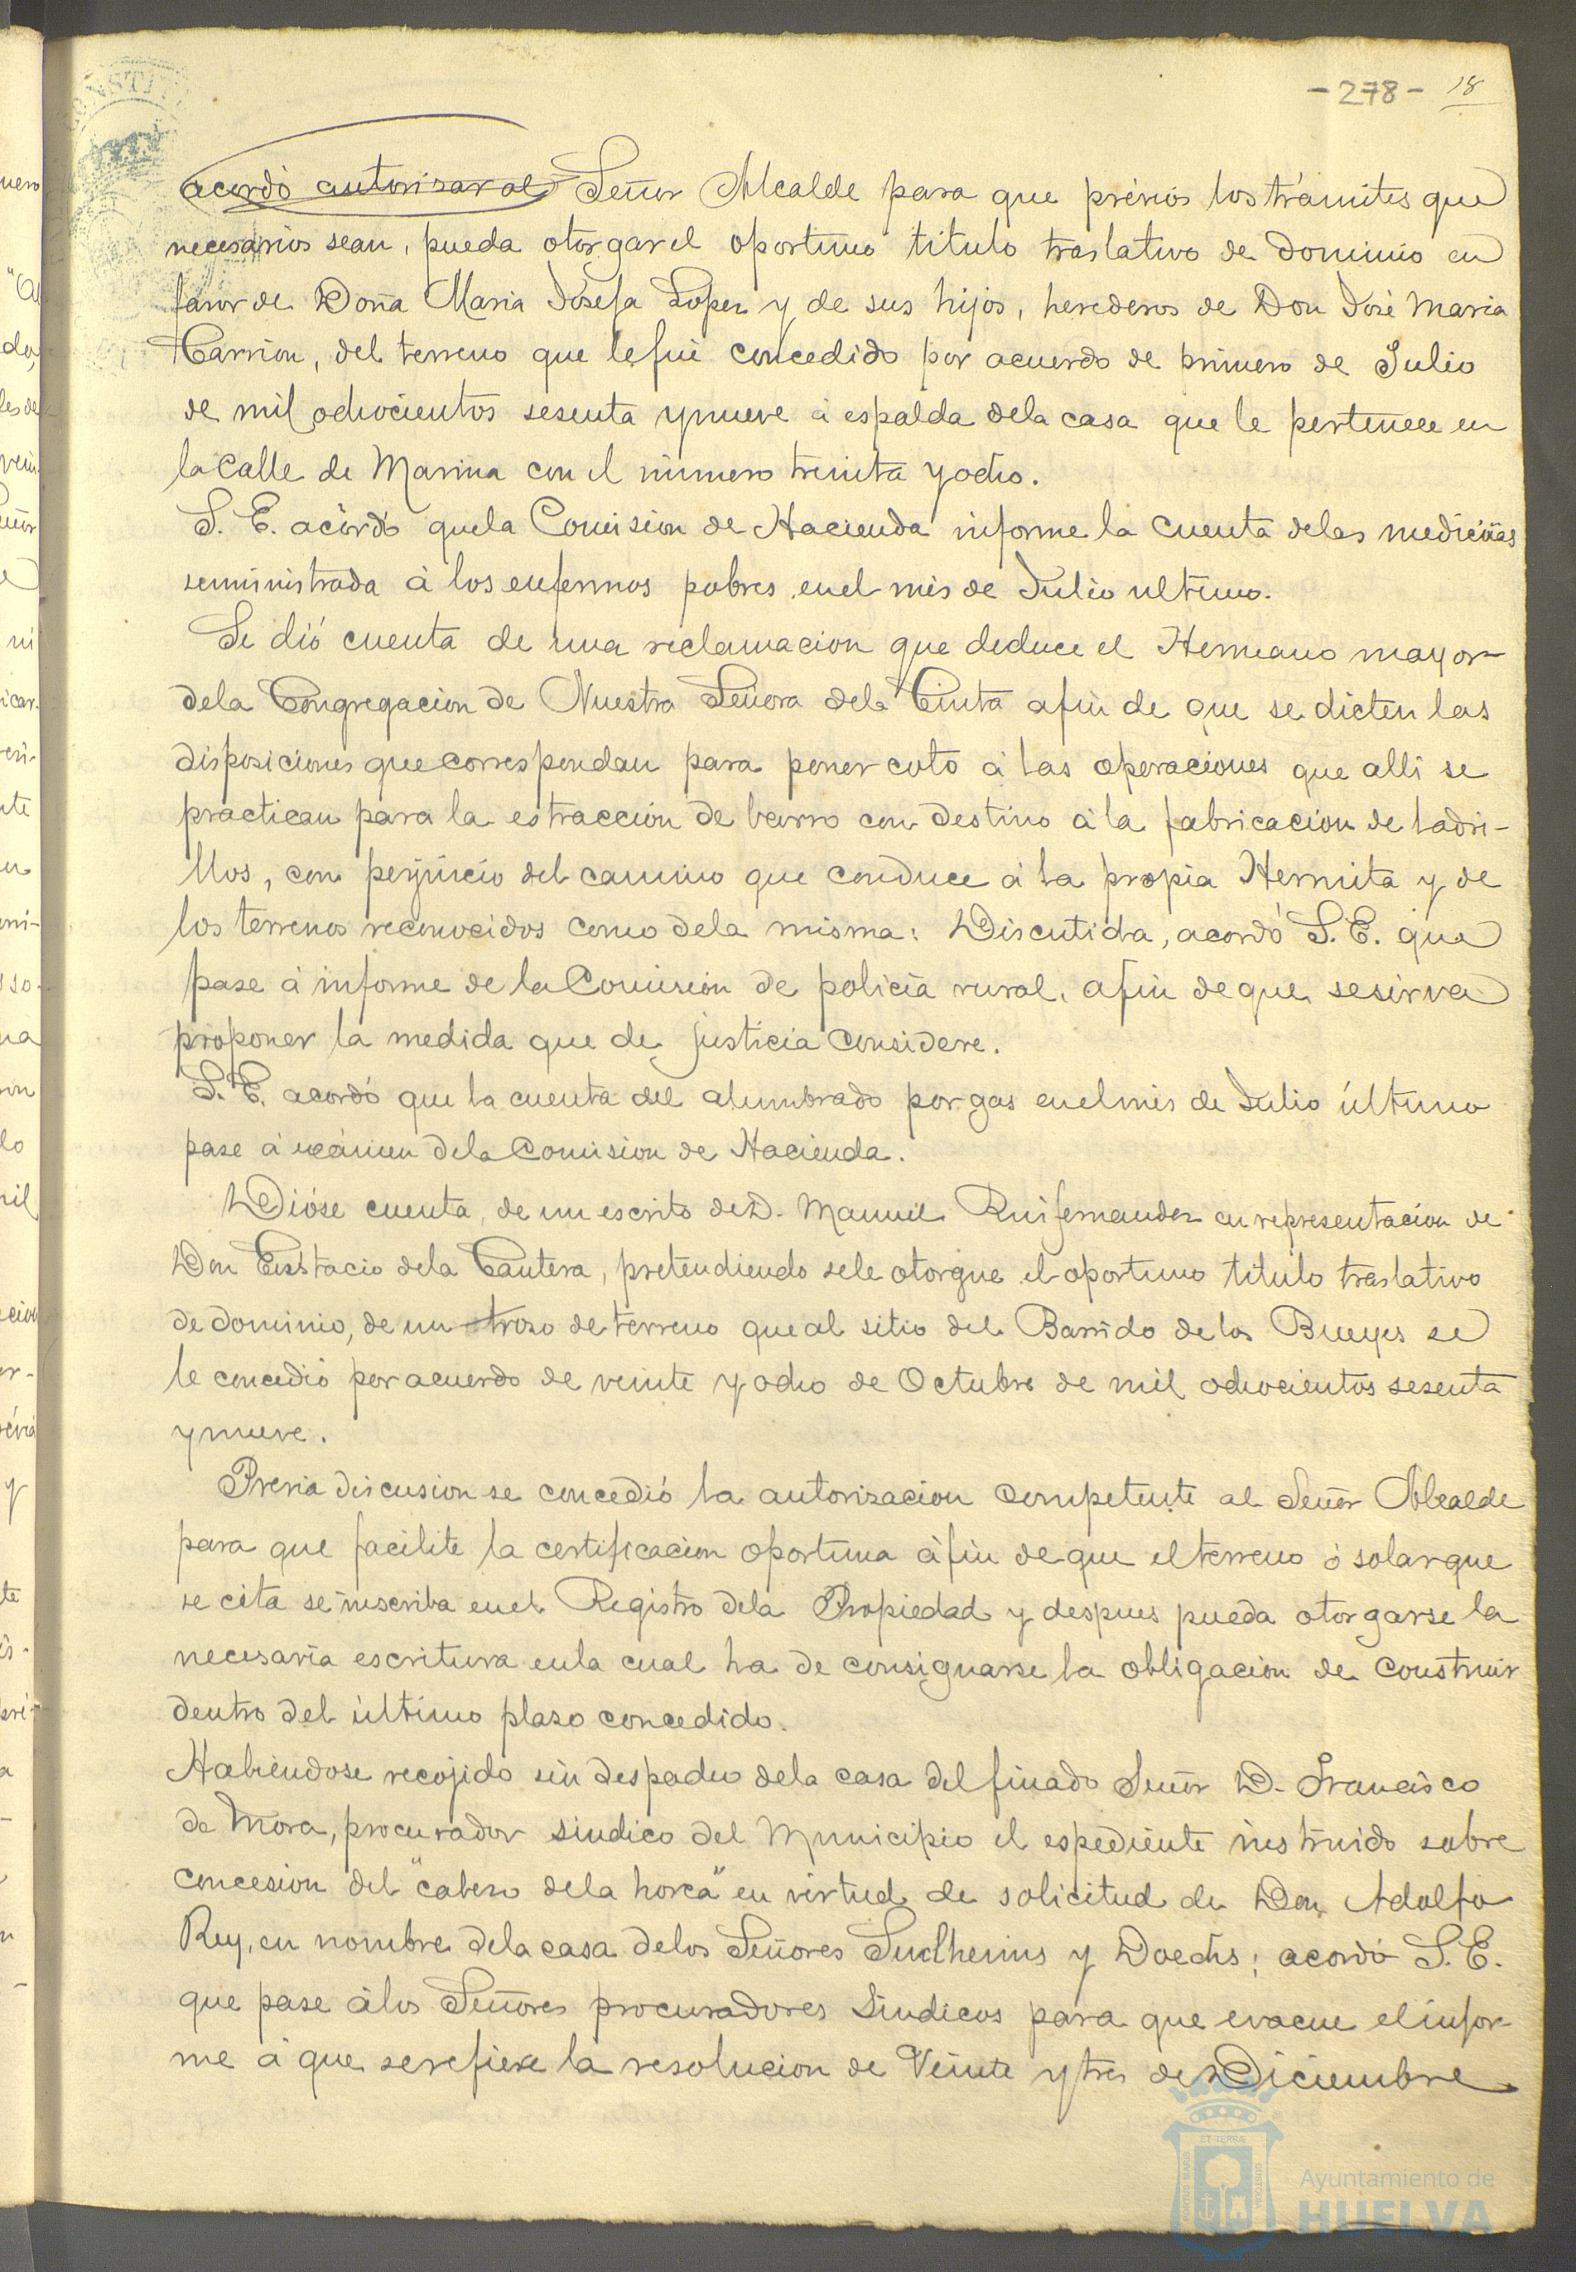 -278- 18
acordó autorizar al Señor Alcalde para que prévios los trámites que
necesarios sean, pueda otorgar el oportuno titulo traslativo de dominio en
favor de Doña Maria Josefa Lopez y de sus hijos, herederos de Don José Maria
Carrion, del terreno que le fué concedido por acuerdo de primero de Julio
de mil ochocientos sesenta y nueve á espalda dela casa que le pertenece en
la calle de Marina con el número treinta y ocho.
S. E. acordó que la Comision de Hacienda informe la cuenta delas medicinas
suministrada á los enfermos pobres en el més de Julio ultimo.
Se dió cuenta de una reclamacion que deduce el Hermano mayor
dela Congregacion de Nuestra Señora dela Cinta afin de que se dicten las
disposiciones que correspondan para poner coto á las operaciones que alli se
practican para la estraccion de barro con destino á la fabricacion de ladri-
llos, con perjuicio del camino que conduce á la propia Hermita y de
los terrenos reconocidos como dela misma: Discutida, acordó S. E. que
pase á informe de la Comision de policia rural, afin de que se sirva
proponer la medida que de justicia considere.
S. E. acordó que la cuenta del alumbrado por gas en el més de Julio último
pase á exámen dela Comision de Hacienda.
Dióse cuenta, de un escrito de D. Manuel Ruifernandez en representacion de
Don Eustacio dela Cantera, pretendiendo se le otorgue el oportuno titulo traslativo
de dominio, de un troso de terreno que al sitio del Barrido de los Bueyes se
le concedió por acuerdo de veinte y ocho de Octubre de mil ochocientos sesenta
y nueve.
Previa discusion se concedió la autorizacion competente al Señor Alcalde
para que facilite la certificacion oportuna áfin de que el terreno ó solar que
se cita se inscriba en el Registro dela Propiedad y despues pueda otorgarse la
necesaria escritura en la cual ha de consignarse la obligacion de construir
dentro del último plaso concedido.
Habiendose recojido sin despacho dela casa del finado Señor D. Francisco
de Mora, procurador sindico del Municipio el espediente instruido sobre
concesion del "cabezo dela horca" en virtud de solicitud de Don Adolfo
Rey, en nombre dela casa delos Señores Sundheims y Doechs; acordó S. E.
que pase álos Señores procuradores Sindicos para que evacue el infor-
me á que se refiere la resolucion de Veinte y tres de Diciembre
Ayuntamiento de
HUELVA